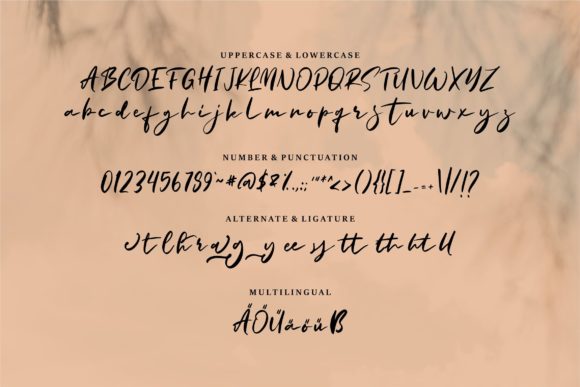 UPPERCASE & LOWERCASE
ABCDEFGHIJKLMNOPQRSTUVWXYZ
abcdefghijklmnopqrstuvwxyz
NUMBER & PUNCTUATION
0123456789~#@$&%.,:;'"*^<>(){}[]_-=+\|/!?
ALTERNATE & LIGATURE
MULTILINGUAL
ÄÖÜäöüß